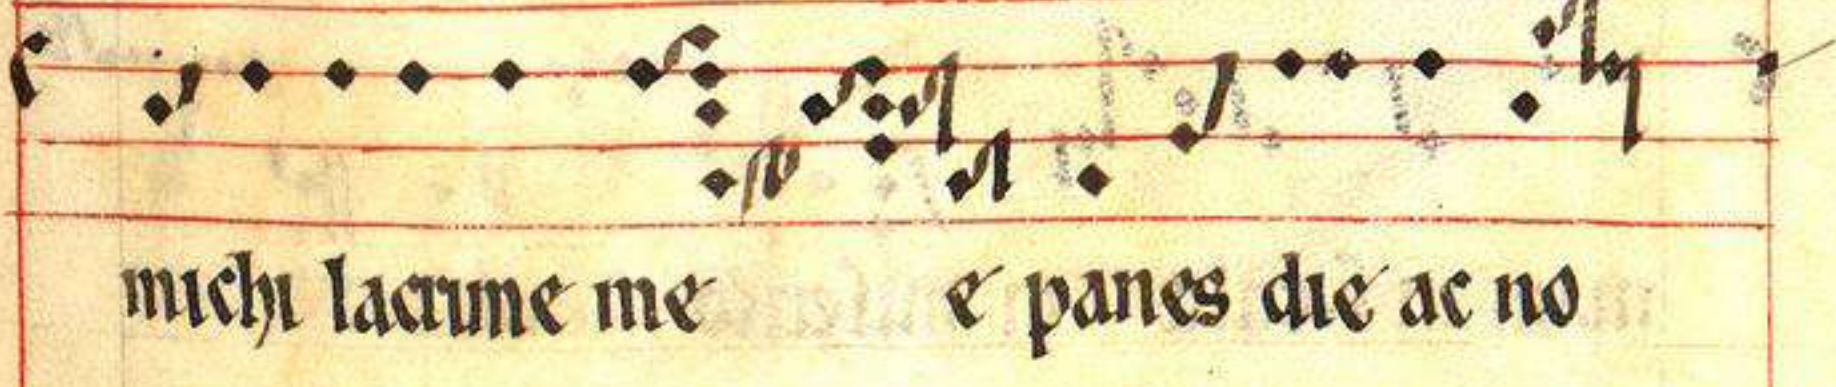 michi lacrime me e panes die ac no